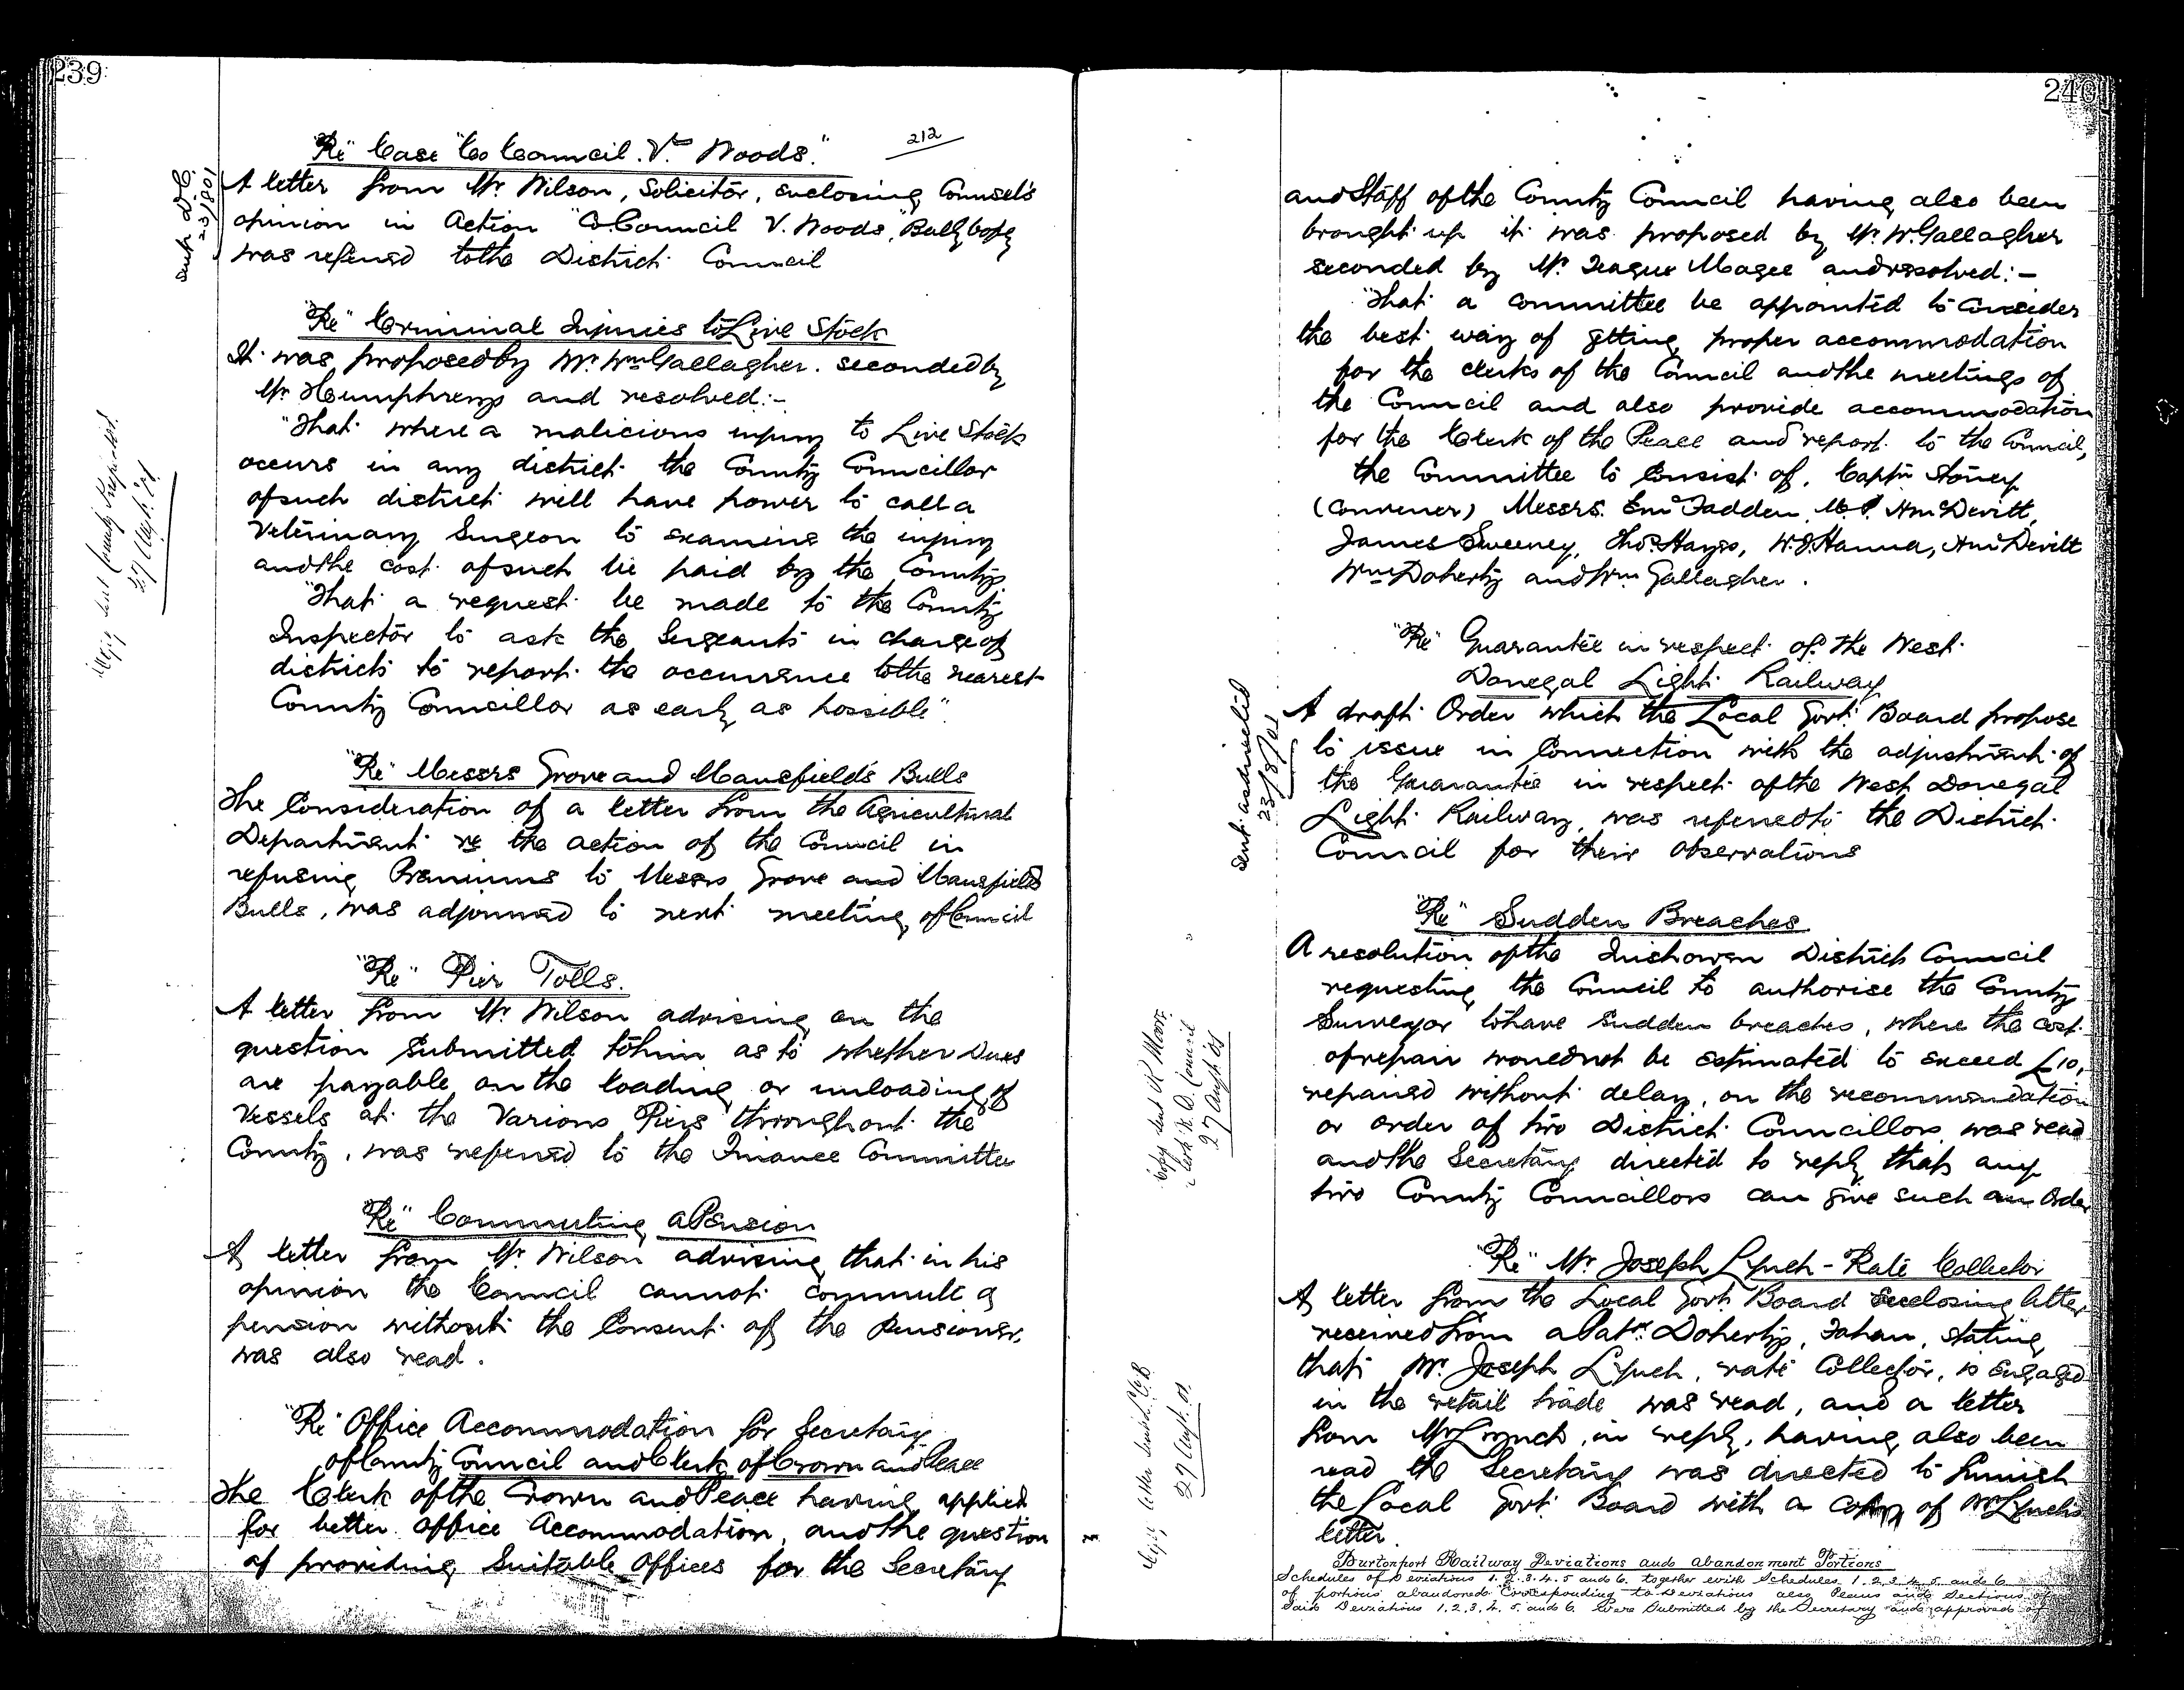 239
212
"Re" Case "Co Council. V. Woods."
Sent D.C.
23/8/01
A letter from Mr. Wilson, Solicitor, enclosing Counsel's
opinion in Action "Co. Council V. Woods", Ballybofey
was referred to the District Council
"Re" Criminal Injuries to Live Stock
It was proposed by Mr. Wm Gallagher. seconded by
Mr Humphreys and resolved:-
"That where a malicious injury to Live Stock
occurs in any district the County Councillor
of such district will have power to call a
Veterinary Surgeon to examine the injury
and the cost of such be paid by the County
"That a request be made to the County
Inspector to ask the Sergeants in charge of
districts to report the occurrence to the nearest
County Councillor as early as possible".
sent County Inspector
27 Augt. 01
"Re" Messrs Grove and Mansfield's Bulls
The Consideration of a letter from the Agricultural
Department re the action of the Council in
refusing Premiums to Messrs Grove and Mansfields
Bulls, was adjourned to next meeting of Council
"Re" Pier Tolls.
A letter from Mr. Wilson advising on the
question submitted to him as to whether Dues
are payable on the loading or unloading of
Vessels at the Various Piers throughout the
County, was referred to the Finance Committee
"Re" Commuting a Pension
A letter from Mr. Wilson advising that in his
opinion the Council cannot commute a
pension without the Consent of the Pensioner,
was also read.
"Re" Office Accommodation for Secretary
of County Council and Clerk of Crown and Peace
The Clerk of the Crown and Peace having applied
for better office Accommodation, and the question
of providing Suitable Offices for the Secretary
240
and Staff of the County Council having also been
brought up it was proposed by Mr. W. Gallagher
seconded by Mr. Teague Magee and resolved:-
"That a committee be appointed to consider
the best way of getting proper accommodation
for the clerks of the Council and the meetings of
the Council and also provide accommodation
for the Clerk of the Peace and report to the Council,
the Committee to Consist of, Captn Stoney
(Convener) Messrs. E McFadden, Devitt,
James Sweeney, Thos. Hayes, W. J. Hanna, Devitt
Wm Doherty and Wm Gallagher.
"Re" Guarantee in respect of the West
Donegal Light Railway
Sent as directed
23/8/01
A draft Order which the Local Govt. Board propose
to issue in Connection with the adjustment of
the Guarantee in respect of the West Donegal
Light Railway, was referred to the District
Council for their Observations
"Re" Sudden Breaches
A resolution of the Inishowen District Council
requesting the Council to authorise the County
Surveyor to have Sudden breaches, where the cost
of repair would not be estimated to exceed £10,
repaired without delay, on the recommendation
or order of two District Councillors was read
and the Secretary directed to reply that any
two County Councillors can give such an Order
Copy sent Moore
Clerk R. D. Council
27 Augt 01
"Re" Mr. Joseph Lynch - Rate Collector
A letter from the Local Govt. Board enclosing letter
received from a Patk. Doherty, Fahan, stating
that Mr. Joseph Lynch, rate Collector, is engaged
in the retail trade was read, and a letter
from Mr Lynch, in reply, having also been
read the Secretary was directed to furnish
the Local Govt. Board with a copy of Mr Lynch's
letter.
27 Augt. 01
Burtonport Railway Deviations and abandonment Portions
Schedules of Deviations 1.2.3.4.5 and 6. together with Schedules 1.2.3.4.5. and 6
of portions abandoned Corresponding to Deviations also Plans and Sections of
Said Deviations 1.2.3.4.5. and 6. were Submitted by the Secretary and approved of